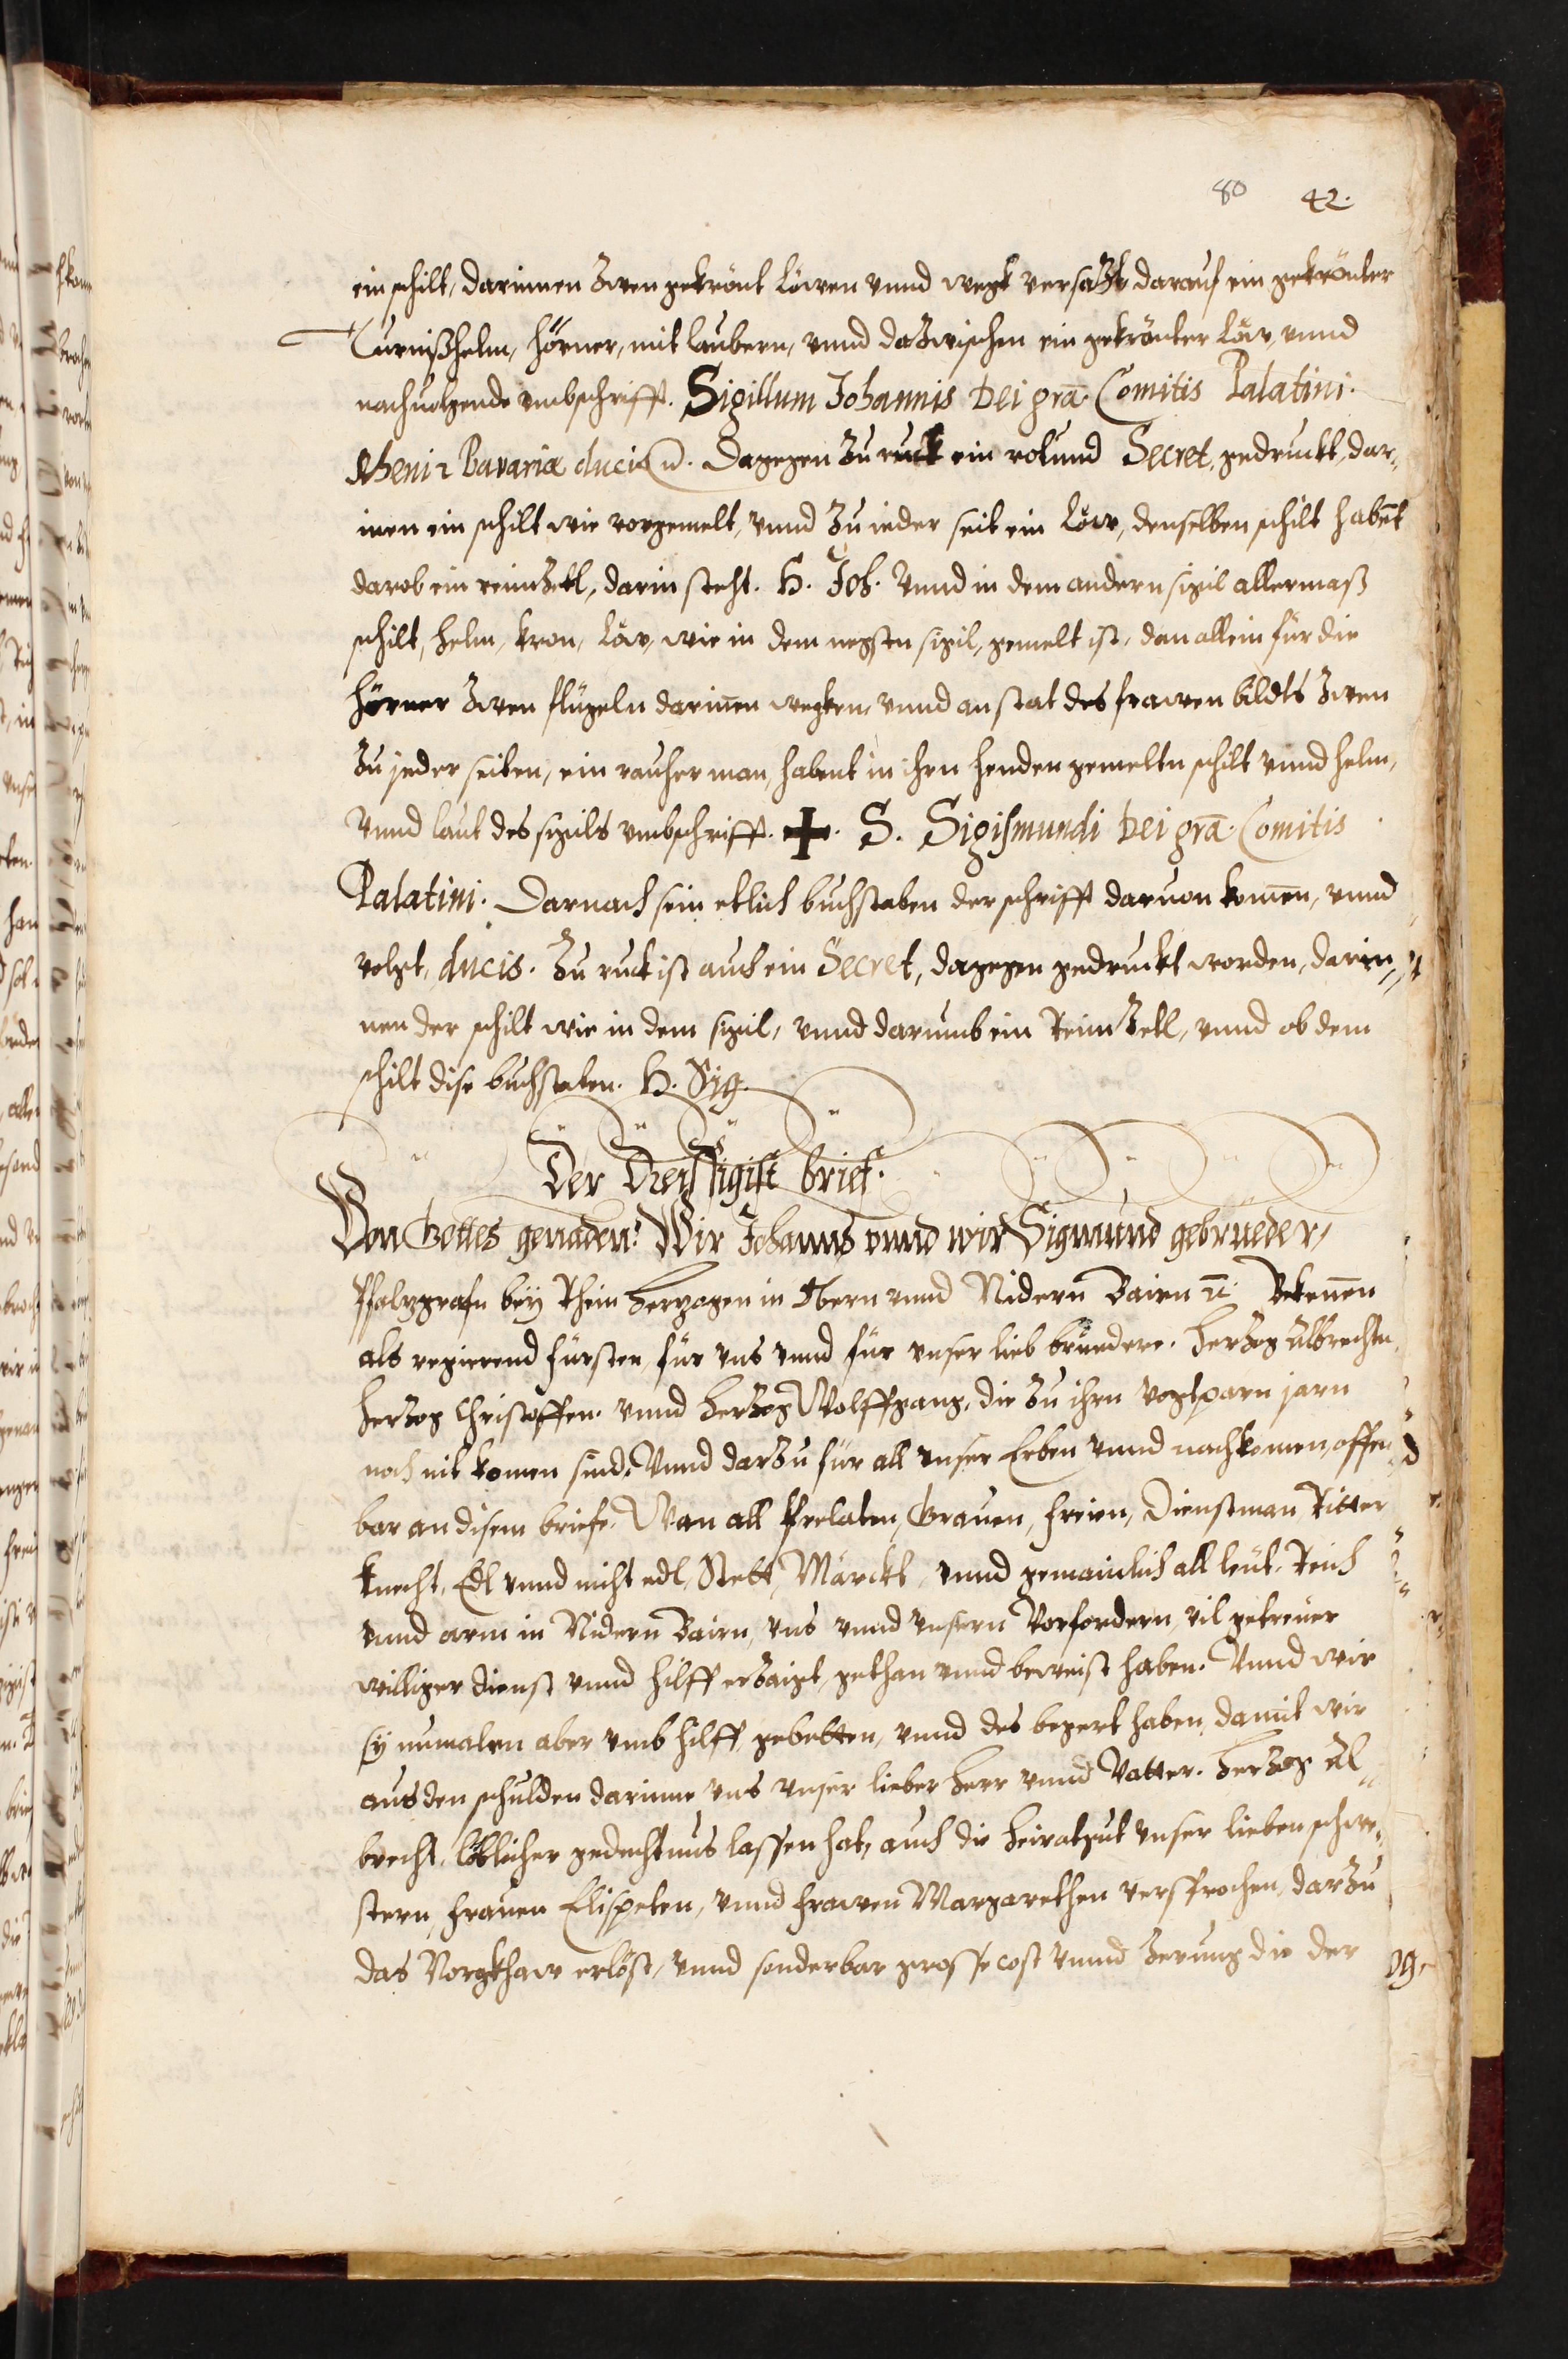 80 42.
ein schilt, darinnen zwen gekrönt löwen vnnd wegk versazt, darauf ein gekrönter
Turnißhelm, hörner, mit laubern, vnnd dazwischen ein gekrönter löw, vnnd
nachuolgende vmbschrifft. Sigillum Johannis Dei grā. Comitis Palatini.
Rheni 2 Bavariæ ducis ꝛc. Dagegen zu ruck ein rotund Secret, gedruckt, dar„
inen ein schilt wie vorgemelt, vnnd zu ieder seit ein löw, denselben schilt habēt
darob ein reimzetl, darin steht. H. Joh. Vnnd in dem andern sigil allermaß
schilt, helm, kron, löw, wie in dem negsten sigil, gemelt ist, dan allein für die
hörner zwen flügeln darin̄en wegken, vnnd an stat des frawen bildts zwen
zu jeder seiten, ein rauher man, habent in ihrn henden gemeltn schilt vnnd helm,
Vnnd laut des sigils vmbschrifft. ✚. S. Sigismundi Dei grā. Comitis
Palatini. Darnach sein etlich buchstaben der schrifft daruon kom̄en, vnnd
volgt, ducis. Zu ruck ist auch ein Secret, dagegen gedruckt worden, darin„
nen der schilt wie in dem sigil, vnnd darumb ein Reimzetl, vnnd ob dem
schilt dise buchstaben. H. Sig.
Der Dreissigist brief.
Von Gottes genaden. Wir Johanns vnnd wir Sigmund gebrueder,
Pfalzgrafn bey Rhein Herzogen in Obern vnnd Nidern Bairn ꝛc. Bekennen
als regierend fürsten, für vns vnnd für vnser lieb brüedere. Herzog Albrechtn,
Herzog Christoffen. vnnd Herzog Wolffgang, die zu ihrn vogtparn jarn
noch nit komen sind, Vnnd darzu für all vnser Erben vnnd nachkomen, offen„
bar an disem briefe, Wan all Prelaten, Grauen, freien, Dienstman Ritter
knecht, Edl vnnd nicht edl, Stett, Märckt, vnnd gemainclich all leüt, Reich
vnnd arm in Nidern Bairn, vns vnnd vnsern Vorfordern, vil getreuer
williger dienst vnnd hilff erzaigt, gethan vnnd beweist haben. Vnnd wir
sy nunmalen aber vmb hilff, gebetten, vnnd des begert haben, damit wir
aus den schulden darinne vns vnser lieber Herr vnnd Vatter. Herzog Al„
brecht, löblicher gedechtnus lassen hat, auch die heiratgut vnser lieben schwe„
stern, frauen Elspeten, vnnd frawen Margarethen versprochen, darzu
das Norgkhaw erlöst, vnnd sonderbar grosse cost vnnd zerung die der